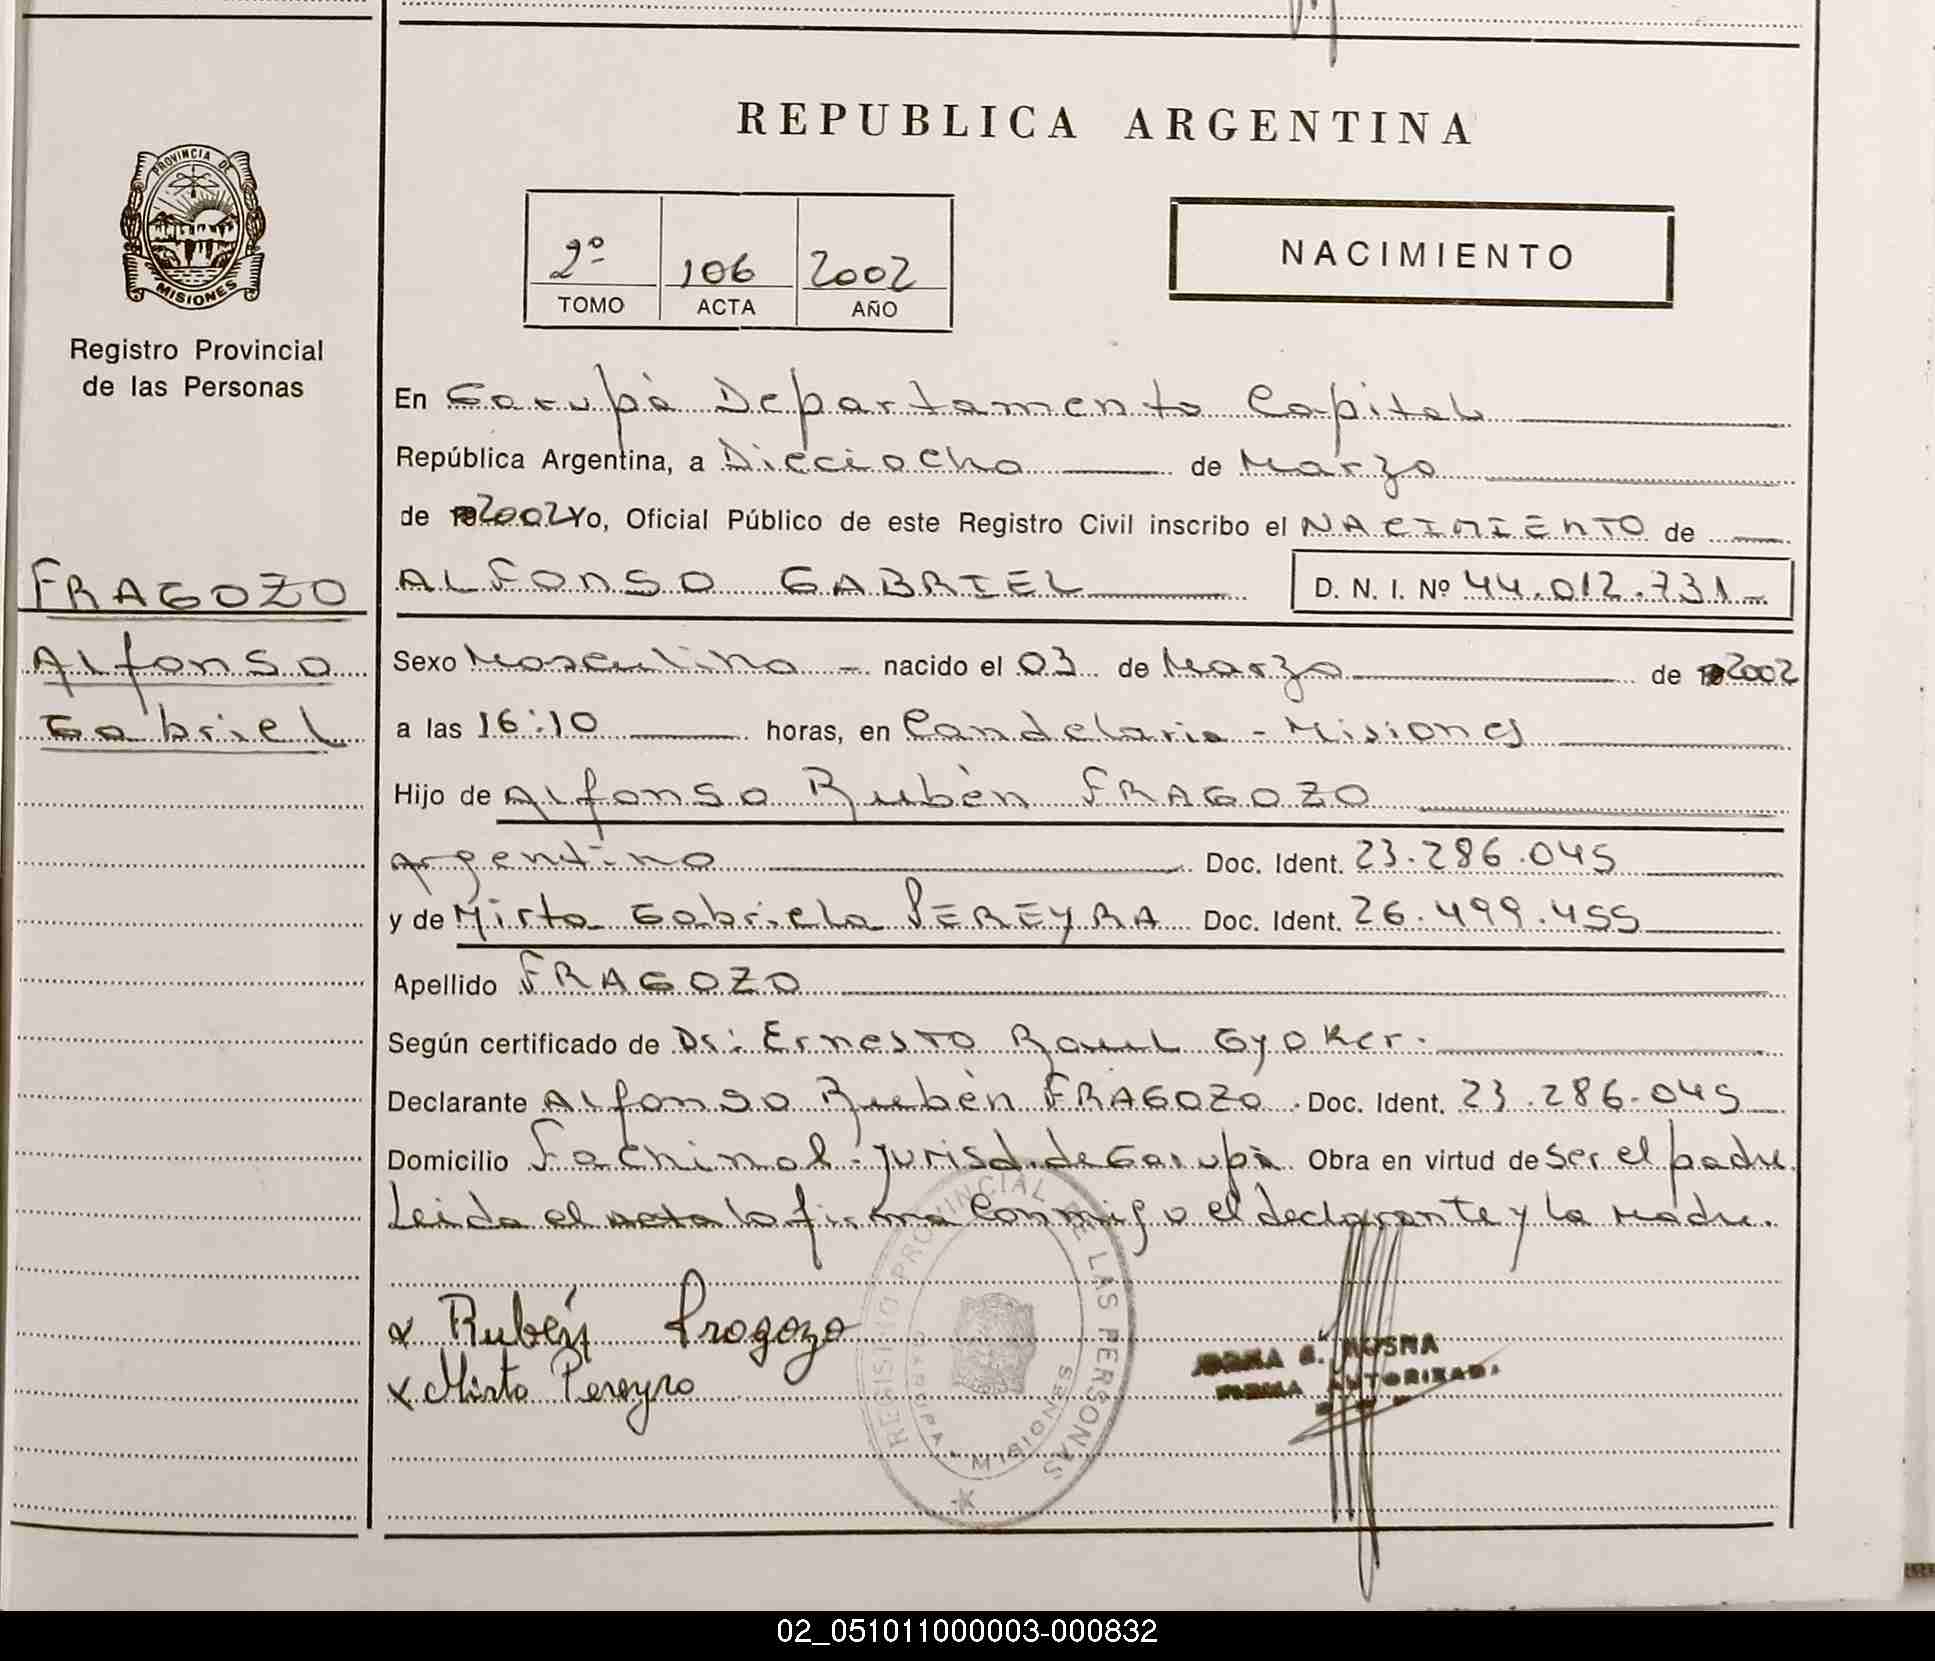 REPUBLICA ARGENTINA
PROVINCIA DE
MISIONES
Registro Provincial
de las Personas
2º 106 2002
TOMO ACTA AÑO
NACIMIENTO
En Garupá Departamento Capital
República Argentina, a Dieciocho de Marzo
de 2002 Yo, Oficial Público de este Registro Civil inscribo el NACIMIENTO de
FRAGOZO
Alfonso
Gabriel
ALFONSO GABRIEL D. N. I. Nº 44.012.731
Sexo Masculino - nacido el 03 de Marzo de 2002
a las 16:10 horas, en Candelaria - Misiones
Hijo de Alfonso Rubén FRAGOZO
argentino Doc. Ident. 23.286.045
y de Mirta Gabriela PEREYRA Doc. Ident. 26.499.455
Apellido FRAGOZO
Según certificado de Dr: Ernesto Raul Gyoker.
Declarante Alfonso Rubén FRAGOZO. Doc. Ident. 23.286.045
Domicilio Fachinal - jurisd. de Garupá Obra en virtud de ser el padre.
Leida el acta la firma conmigo el declarante y la madre.
x Rubén Fragozo
x Mirta Pereyra
REGISTRO PROVINCIAL DE LAS PERSONAS
GARUPA MISIONES
FIRMA AUTORIZADA
02_051011000003-000832